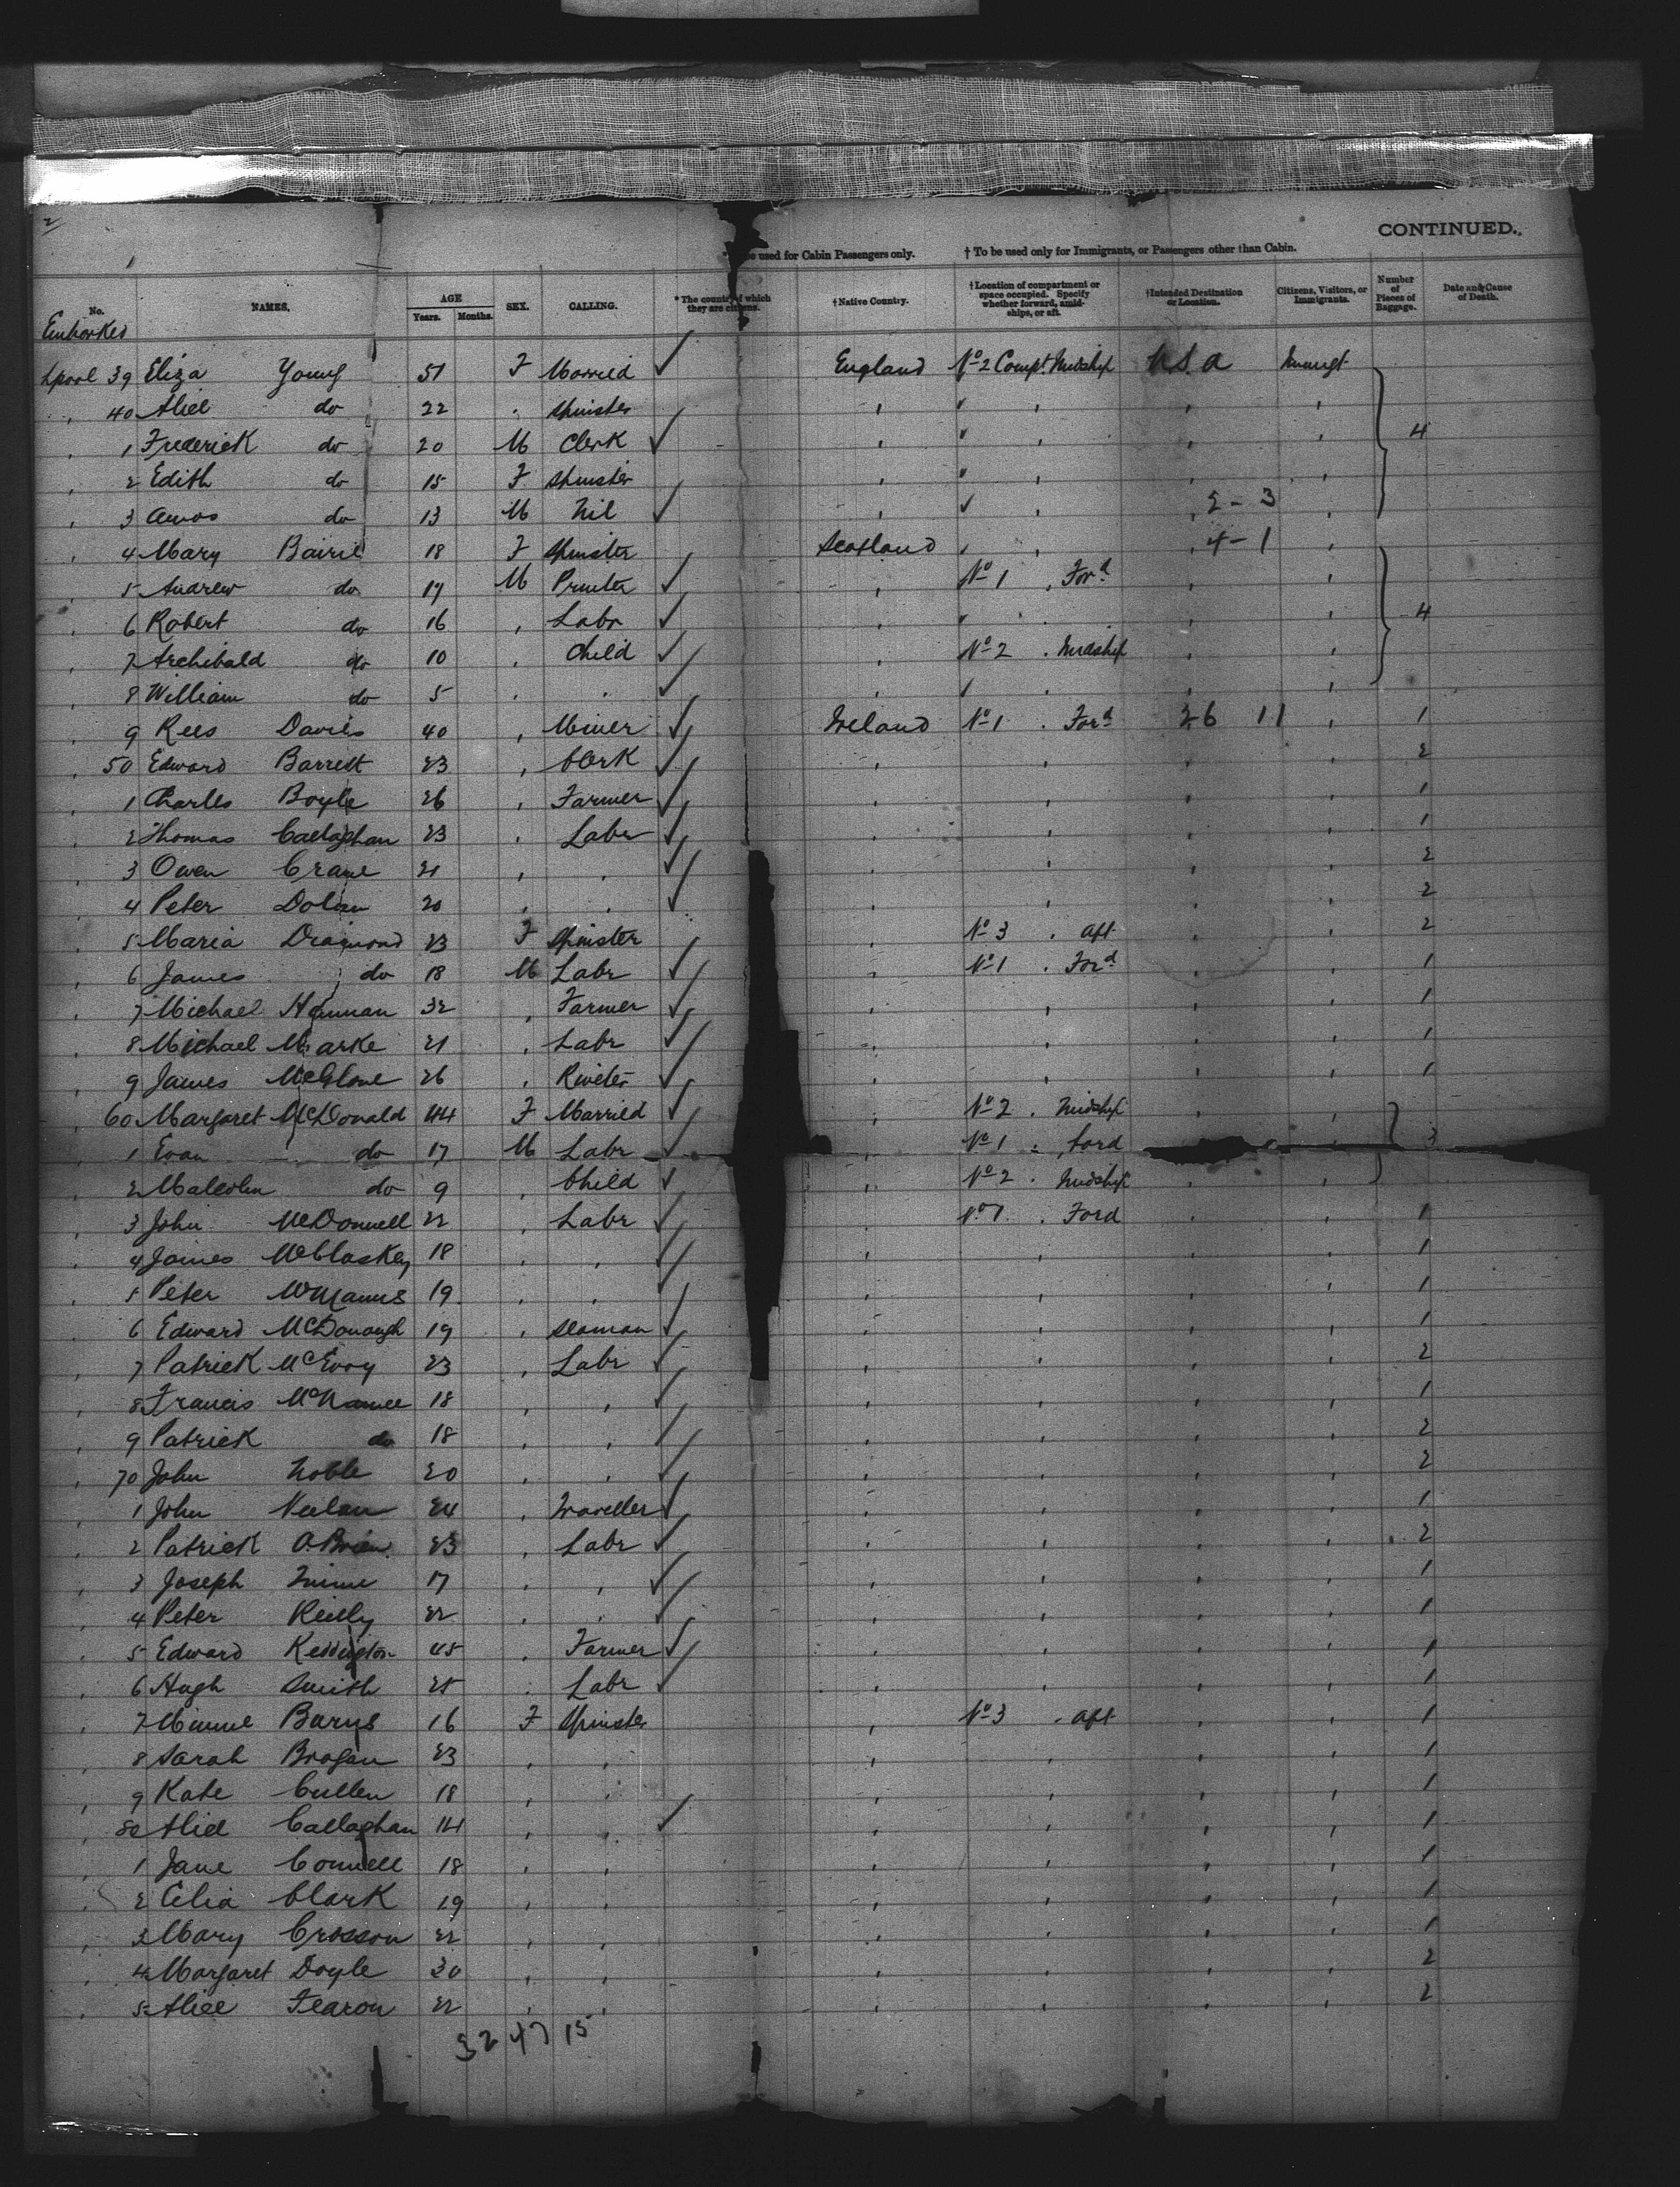 2
CONTINUED.
be used for Cabin Passengers only. † To be used only for Immigrants, or Passengers other than Cabin.
No. NAMES. AGE Years. Months. SEX. CALLING. * The country of which they are citizens. † Native Country. † Location of compartment or space occupied. Specify whether forward, amidships, or aft. † Intended Destination or Location. Citizens, Visitors, or Immigrants. Number of Pieces of Baggage. Date and Cause of Death.
Embarked
Lpool 39 Eliza Young 51 F Married ✓ England No 2 Compt. Midship U.S.A Immigt
" 40 Alice do 22 " Spinster " " " " "
" 1 Frederick do 20 M Clerk ✓ " " " " " 4
" 2 Edith do 15 F Spinster " " " " "
" 3 Amos do 13 M Nil ✓ " " " " 2 - 3 "
" 4 Mary Bairie 18 F Spinster Scotland " " " 4 - 1 "
" 5 Andrew do 17 M Printer ✓ " No 1 " Ford " "
" 6 Robert do 16 " Labr ✓ " " " " " 4
" 7 Archibald do 10 " Child ✓ " No 2 " Midship " "
" 8 William do 5 " " ✓ " " " " "
" 9 Rees Davies 40 " Miner ✓ Ireland No 1 " Ford 26 11 " 1
" 50 Edward Barrett 23 " Clerk ✓ " " " " 2
" 1 Charles Boyle 26 " Farmer ✓ " " " " 1
" 2 Thomas Callaghan 23 " Labr ✓ " " " " 1
" 3 Owen Crane 21 " " ✓ " " " " 2
" 4 Peter Dolan 20 " " ✓ " " " " 2
" 5 Maria Diamond 23 F Spinster " No 3 " Aft " " 2
" 6 James do 18 M Labr ✓ " No 1 " Ford " " 1
" 7 Michael Hannan 32 " Farmer ✓ " " " " 1
" 8 Michael Marke 21 " Labr ✓ " " " " 1
" 9 James McGlone 26 " Riveter ✓ " " " " 1
" 60 Margaret McDonald 44 F Married ✓ " No 2 " Midship " "
" 1 Evan do 17 M Labr ✓ " No 1 " Ford " " 3
" 2 Malcolm do 9 " Child ✓ " No 2 " Midship " "
" 3 John McDonnell 22 " Labr ✓ " No 1 " Ford " " 1
" 4 James McClaskey 18 " " ✓ " " " " 1
" 5 Peter McManus 19 " " ✓ " " " " 1
" 6 Edward McDonough 19 " Seaman ✓ " " " " 1
" 7 Patrick McEvoy 23 " Labr ✓ " " " " 2
" 8 Francis McNamee 18 " " ✓ " " " " 1
" 9 Patrick do 18 " " ✓ " " " " 2
" 70 John Noble 20 " " ✓ " " " " 2
" 1 John Neelan 24 " Traveller ✓ " " " " 1
" 2 Patrick O.Brien 23 " Labr ✓ " " " " 2
" 3 Joseph 17 " " ✓ " " " " 1
" 4 Peter Reilly 22 " " ✓ " " " " 1
" 5 Edward Keddington 45 " Farmer ✓ " " " " 1
" 6 Hugh Smith 25 " Labr ✓ " " " " 1
" 7 Minnie Burns 16 F Spinster " No 3 " Aft " " 1
" 8 Sarah Brogan 23 " " " " " " 1
" 9 Kate Cullen 18 " " " " " " 1
" 80 Alice Callaghan 14 " " ✓ " " " " 1
" 1 Jane Connell 18 " " " " " " 1
" 2 Celia Clark 19 " " " " " " 1
" 3 Mary Crosson 22 " " " " " " 1
" 4 Margaret Doyle 30 " " " " " " 2
" 5 Alice Fearon 22 " " " " " " 2
32 47 15